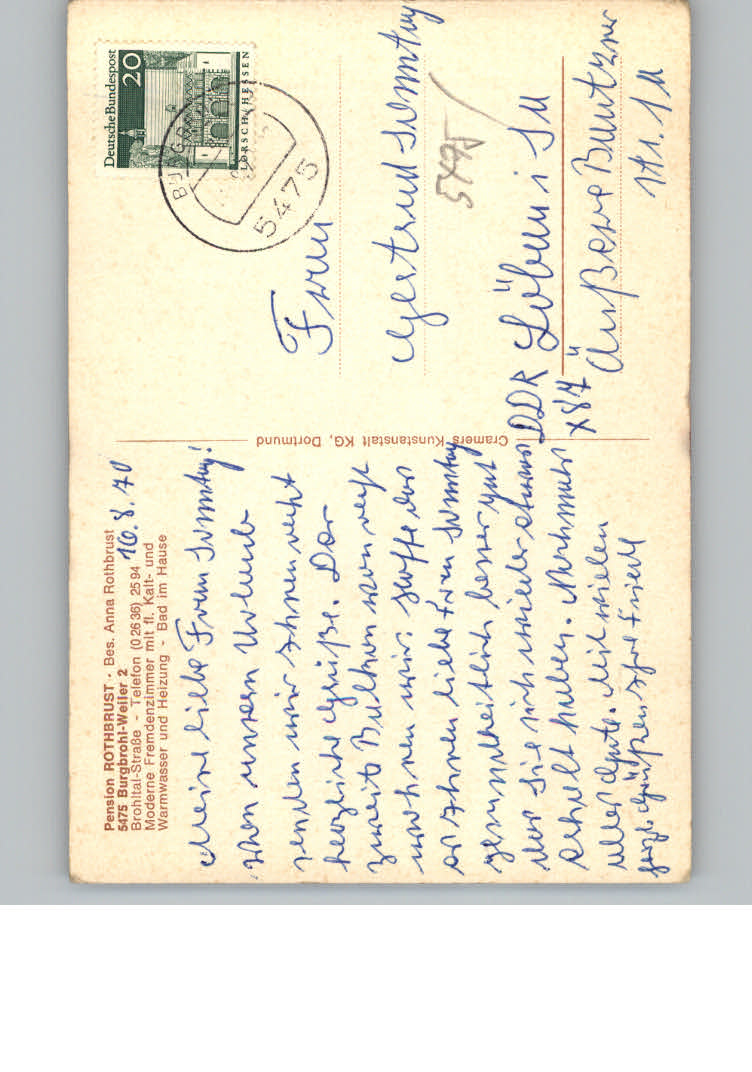 Pension ROTHBRUST · Bes. Anna Rothbrust
5475 Burgbrohl-Weiler 2
Brohltal-Straße - Telefon (0 26 36) 25 94
Moderne Fremdenzimmer mit fl. Kalt- und
Warmwasser und Heizung - Bad im Hause
16.8.70
Meine liebe Frau Sonntag!
Von unsern Urlaub
senden wir Ihnen recht
herzliche Grüße. Der
zweite Balkon von rechts
wohnen wir. Hoffe das
es Ihnen liebe Frau Sonntag
gesundheitlich besser geht
und Sie sich wieder etwas
erholt haben. Nochmals
alles Gute. Mit vielen
herzl. Grüßen Ihre
Cramers Kunstanstalt KG, Dortmund
Deutsche Bundespost
20
LORSCH/HESSEN
5475
Frau
Gertrud Sonntag
5475
DDR Löbau i Sa
X87
Äußere Bautzner
Str. 1a